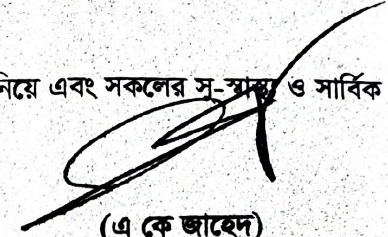 নিয়ে এবং সকলের সু-স্বাস্থ্য ও সার্বিক
(এ কে জাহেদ)